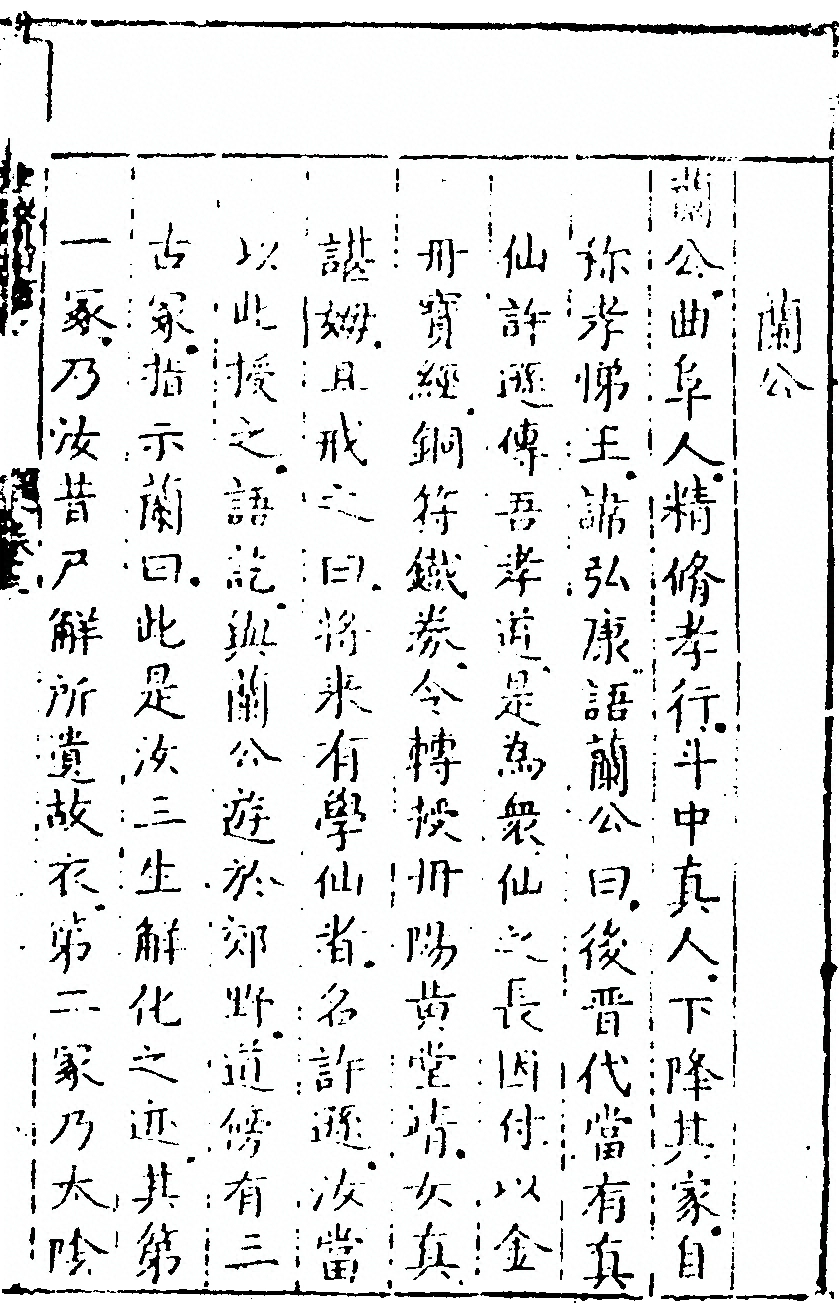 蘭公
蘭公曲阜人精脩孝行斗中真人下降其家自
称孝悌王諱弘康語蘭公曰後晋代當有真
仙許遜傳吾孝道是為衆仙之長因付以金
丹寳經銅符鐵券令轉授丹陽黄堂靖女真
諶姆且戒之曰将来有學仙者名許遜汝當
以此授之語訖與蘭公遊於郊野道傍有三
古冢指示蘭曰此是汝三生解化之迹其第
一冢乃汝昔尸解所遺故衣第二冢乃太陰